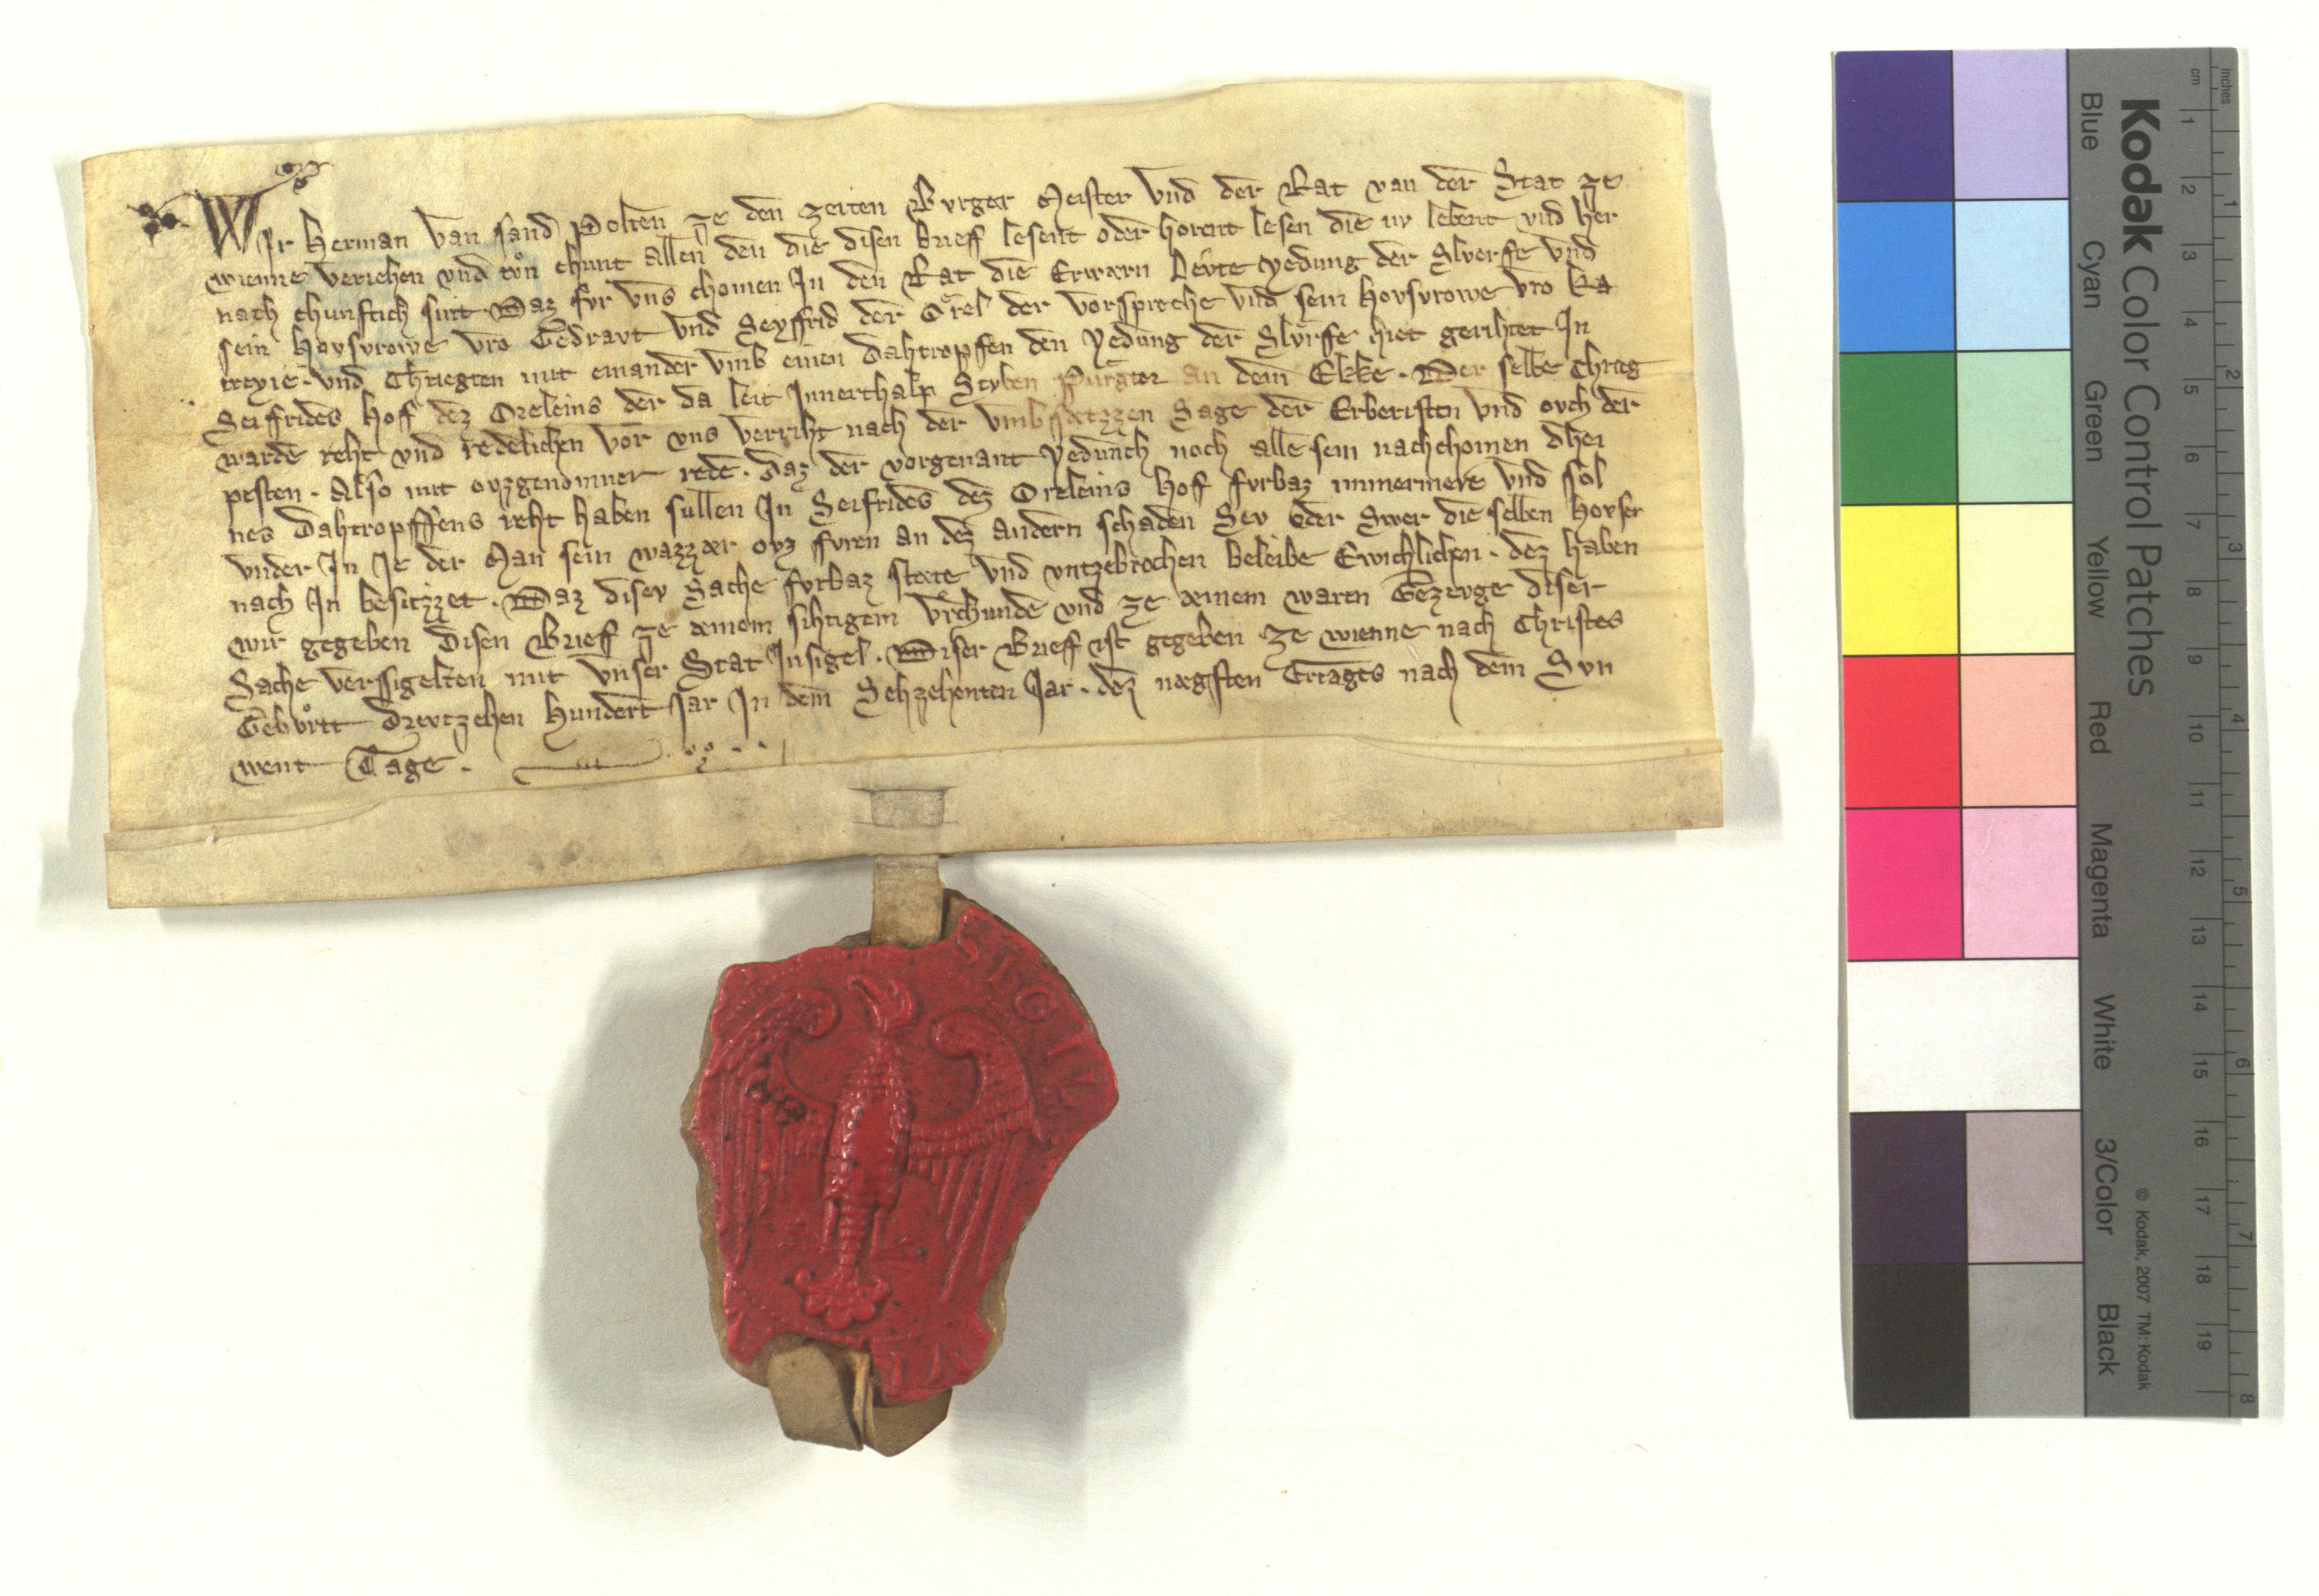 WIr Herman van sand Polten ze den zeiten Burger Meister vnd der Rat van der Stat ze
wienne veriehen vnd tvn chunt allen den die disen brieff lesent oder horent lesen die nv lebent vnd her
nach chunftich sint. Daz fvr vns chomen In den Rat die Erwærn Levte yedung der Slverffe vnd
sein Hovsvrowe vro Gedravt vnd Seyffrid der Orel der vorspreche vnd sein Hovsvrowe vro ka
treyie. vnd Chriegten mit einander vmb einen dahtropffen den yedung der Slvrffe hiet gerihtet In
Seiffrides hoff dez Oreleins der da leit Innerthalp Styben Purgtor an dem Ekke. Der selbe Chrieg
warde reht vnd redelichen vor vns verriht nach der vmbsætzzen Sage der Erberisten vnd ovch der
pesten. Also mit ovzgenomner rede. daz der vorgenant yedunch noch alle sein nachchomen dhei
nes dahtropfffens reht haben sullen In Seifrides dez Oreleins Hoff fvrbaz immermere vnd sol
vnder In Je der Man sein wazzær ovz fvren an dez andern schaden Sev oder Swer die selben Hovser
nach In besitzzet. Daz disev Sache fvrbaz stæte vnd vntzebrochen beleibe Ewichlichen. dez haben
wir gegeben disen Brieff ze æinem sihtigem vrchunde vnd ze æinem waren Gezevge diser
Sache verssigelten mit vnser Stat Insigel. Diser Brieff ist gegeben ze wienne nach Christes
Gebvrtt drevtzehen Hundert Jar In dem Sehzehenten Jar. dez nægsten Ertagts nach dem Svn
went Tage.
SIGIL
Kodak Color Control Patches
© Kodak, 2007 TM: Kodak
Blue Cyan Green Yellow Red Magenta White 3/Color Black
cm 1 2 3 4 5 6 7 8 9 10 11 12 13 14 15 16 17 18 19
inches 1 2 3 4 5 6 7 8